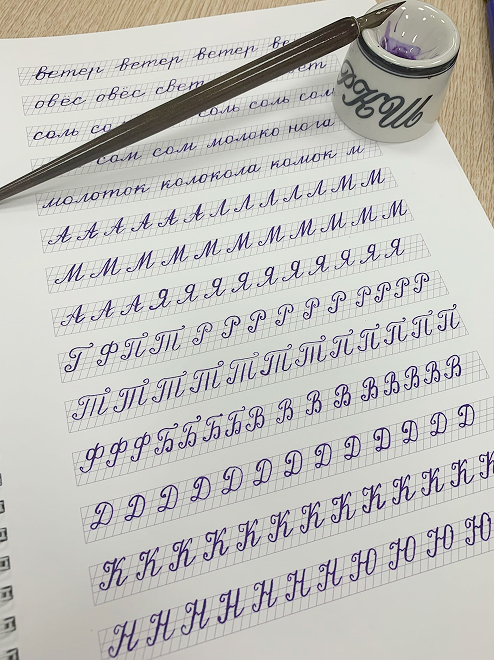 ветер ветер ветер ве
овёс овёс свет ет
соль со соль соль соль
сом сом молоко нога
молоток колокола комок м
А А А А А А Л Л Л Л Л М М
М М М М М М М М М М М М
А А А Я Я Я Я Я Я Я Я Я Я
Г Ф П Т Р Р Р Р Р Р Р Р Р Р
Т Т Т Т Т Т Т П П П П П
Ф Ф Ф Б Б Б Б В В В В В В В В В
Д Д Д Д Д Д Д Д Д Д Д Д Д
К К К К К К К К К К К К К
Н Н Н Н Н Н Н Ю Ю Ю Ю